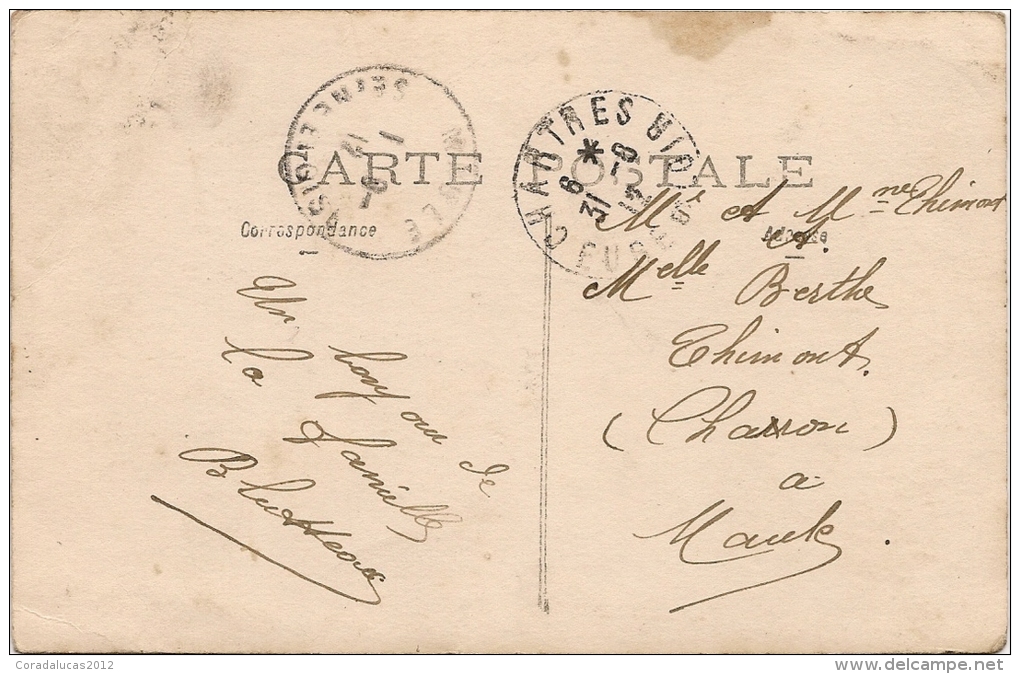 CARTE POSTALE
Correspondance
Adresse
CHARTRES
31 6
SEINE ET OISE
MAULE
Un bonjour de
la famille
Mr et Mme Thimont
et
Melle Berthe
Thimont
(Charron)
à
Maule
Coradalucas2012
delcampe.net